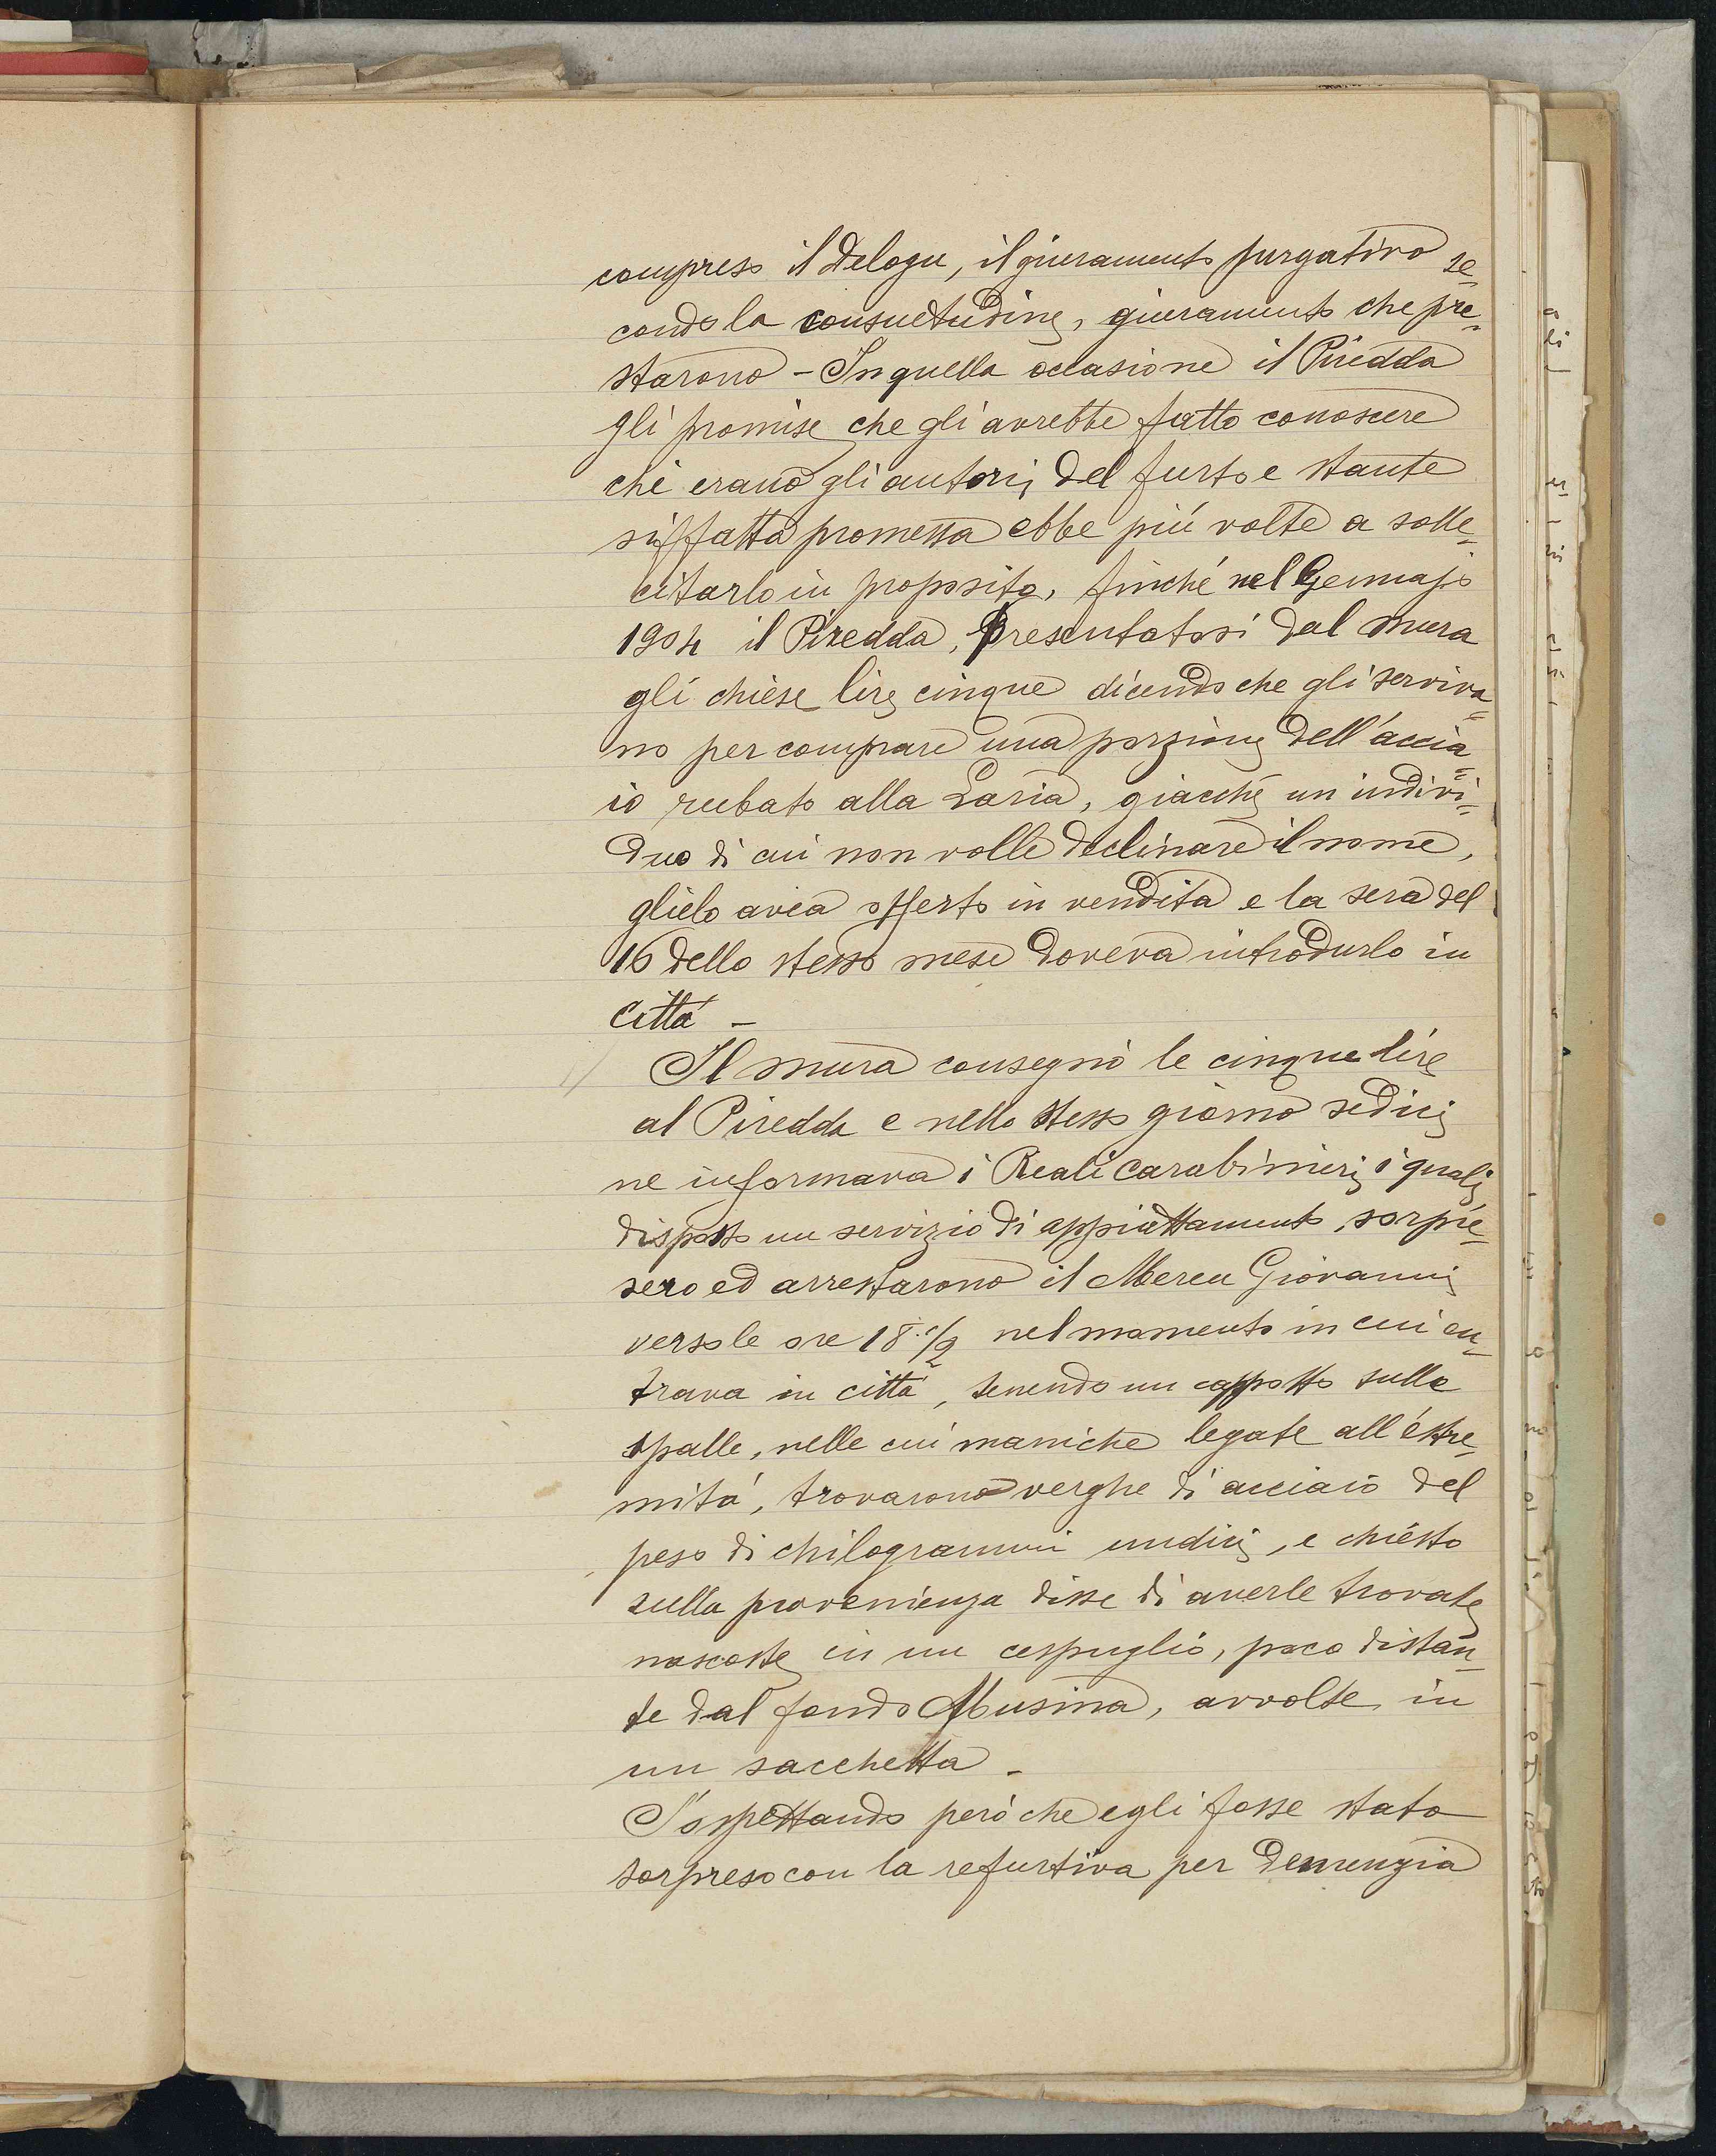 compreso il Delogu, il giuramento purgativo se-
condo la consuetudine, giuramento che pre-
starono - In quella occasione il Piredda
gli promise che gli avrebbe fatto conoscere
chi erano gli autori del furto e stante
siffatta promessa ebbe più volte a solle-
citarlo in proposito, finché nel Gennajo
1904 il Piredda, presentatosi dal Mura
gli chiese lire cinque dicendo che gli serviva-
no per comprare una porzione dell'accia-
io rubato alla Saria, giacché un indivi-
duo di cui non volle declinare il nome,
glielo avea offerto in vendita e la sera del
16 dello stesso mese doveva introdurlo in
città -
Il Mura consegnò le cinque lire
al Piredda e nello stesso giorno sedici
ne informava i Reali Carabinieri i quali
disposto un servizio di appiattamento, sorpre-
sero ed arrestarono il Mereu Giovanni
verso le ore 18 1/2 nel momento in cui en-
trava in città, tenendo un cappotto sulle
spalle, nelle cui maniche legate all'estre-
mità, trovarono verghe di acciaio del
peso di chilogrammi undici, e chiesto
sulla provenienza disse di averle trovate
nascoste in un cespuglio, poco distan-
te dal fondo Abusina, avvolte in
un sacchetto -
Sospettando però che egli fosse stato
sorpreso con la refurtiva per denunzia